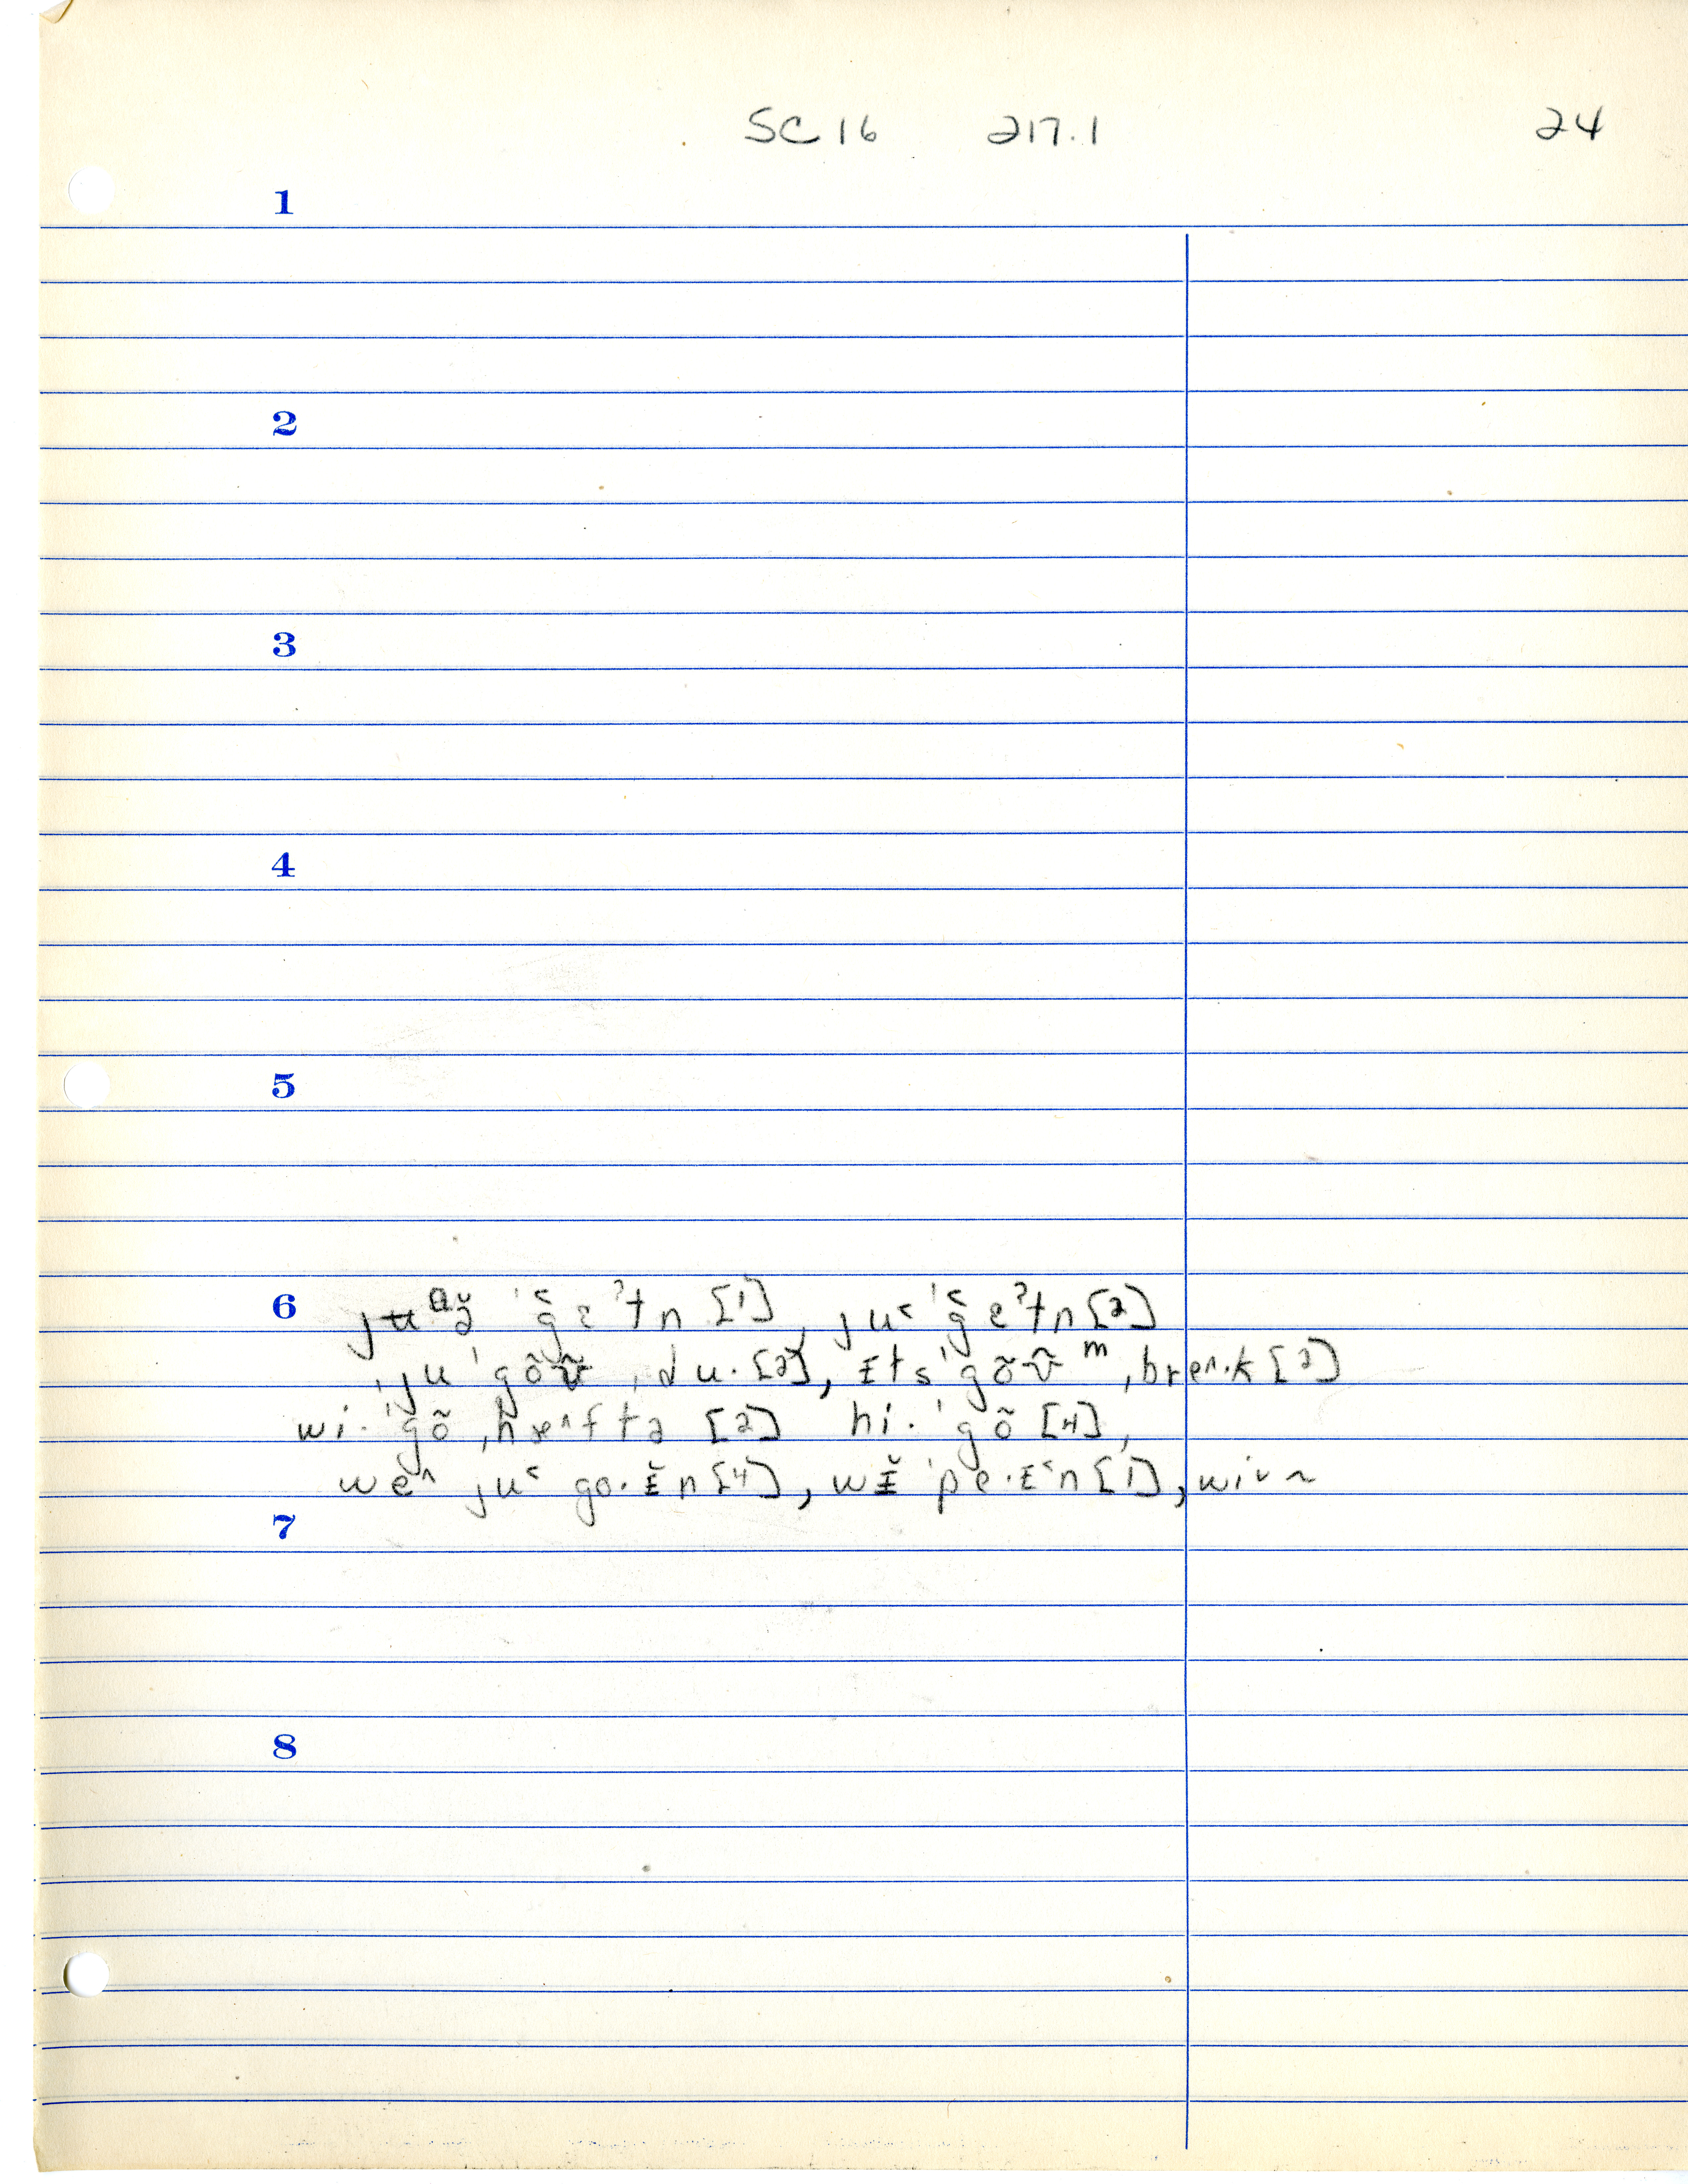 SC16 217.1 24
1
2
3
4
5
6 jʉᵅə̆ ˈǧɛˀtn [1], ju˂ ˈǧeˀtn [2]
ˈju ˈgõʊ̃ ˌdu· [2], ɪtsˈgõʊ̃ᵐ ˌbre˄·k [2]
wi·ˈgõ ˌhæ˄ftə [2] hi·ˈgõ [4],
we˄ ju˂ go·ɪ̆n [4], wɪ̆ ˈpe·ɪ˂n [1],
7
8